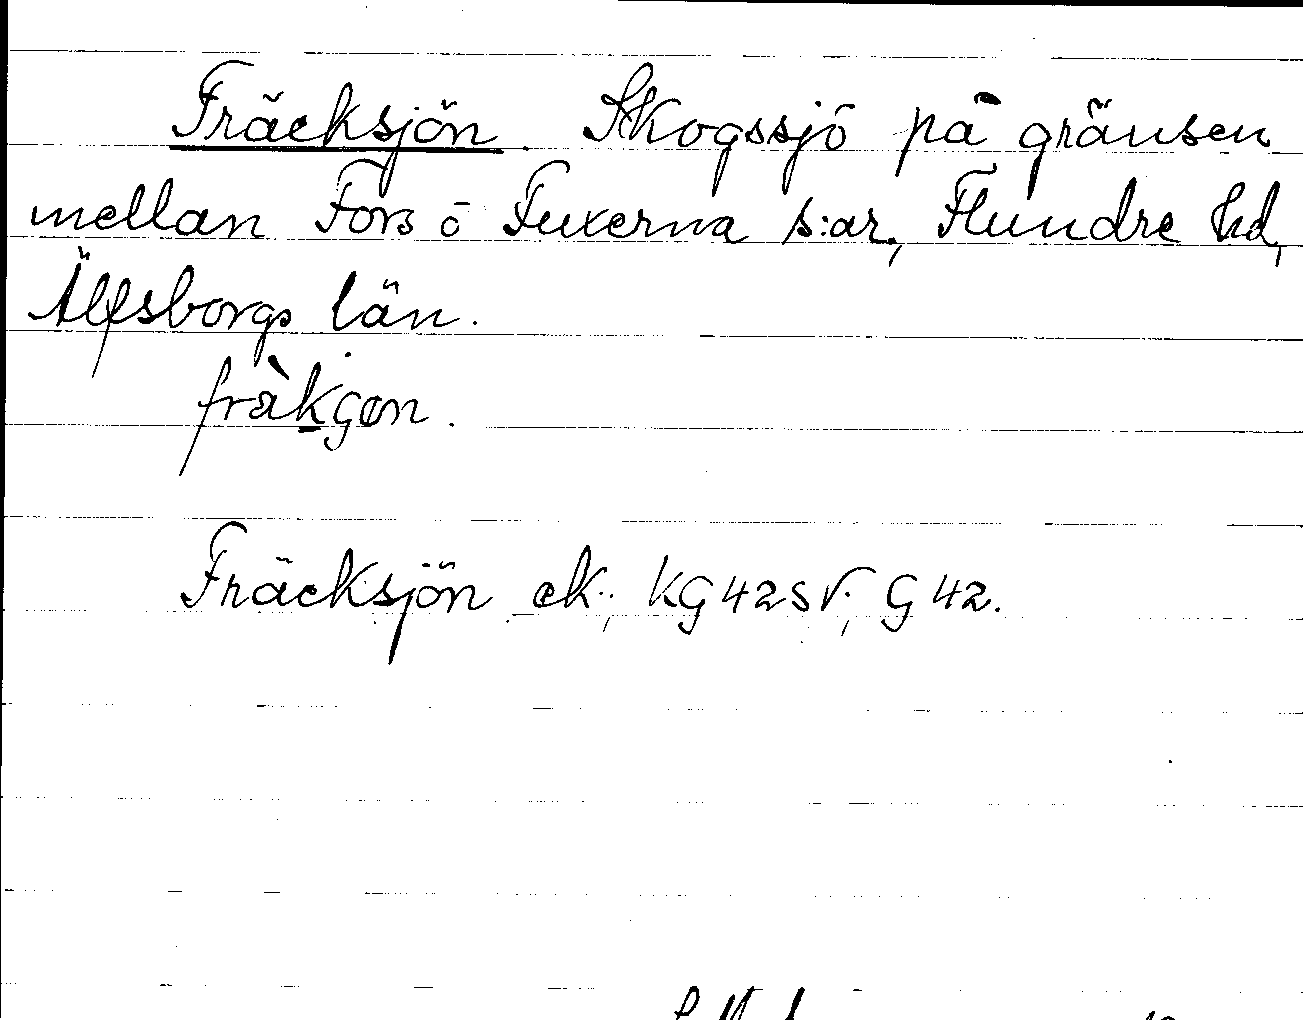 Fräcksjön. Skogssjö på gränsen
mellan Fors o Fuxerna s:ar., Flundre hd,
Älfsborgs län.
Fräcksjön ek., KG42SV., G42.